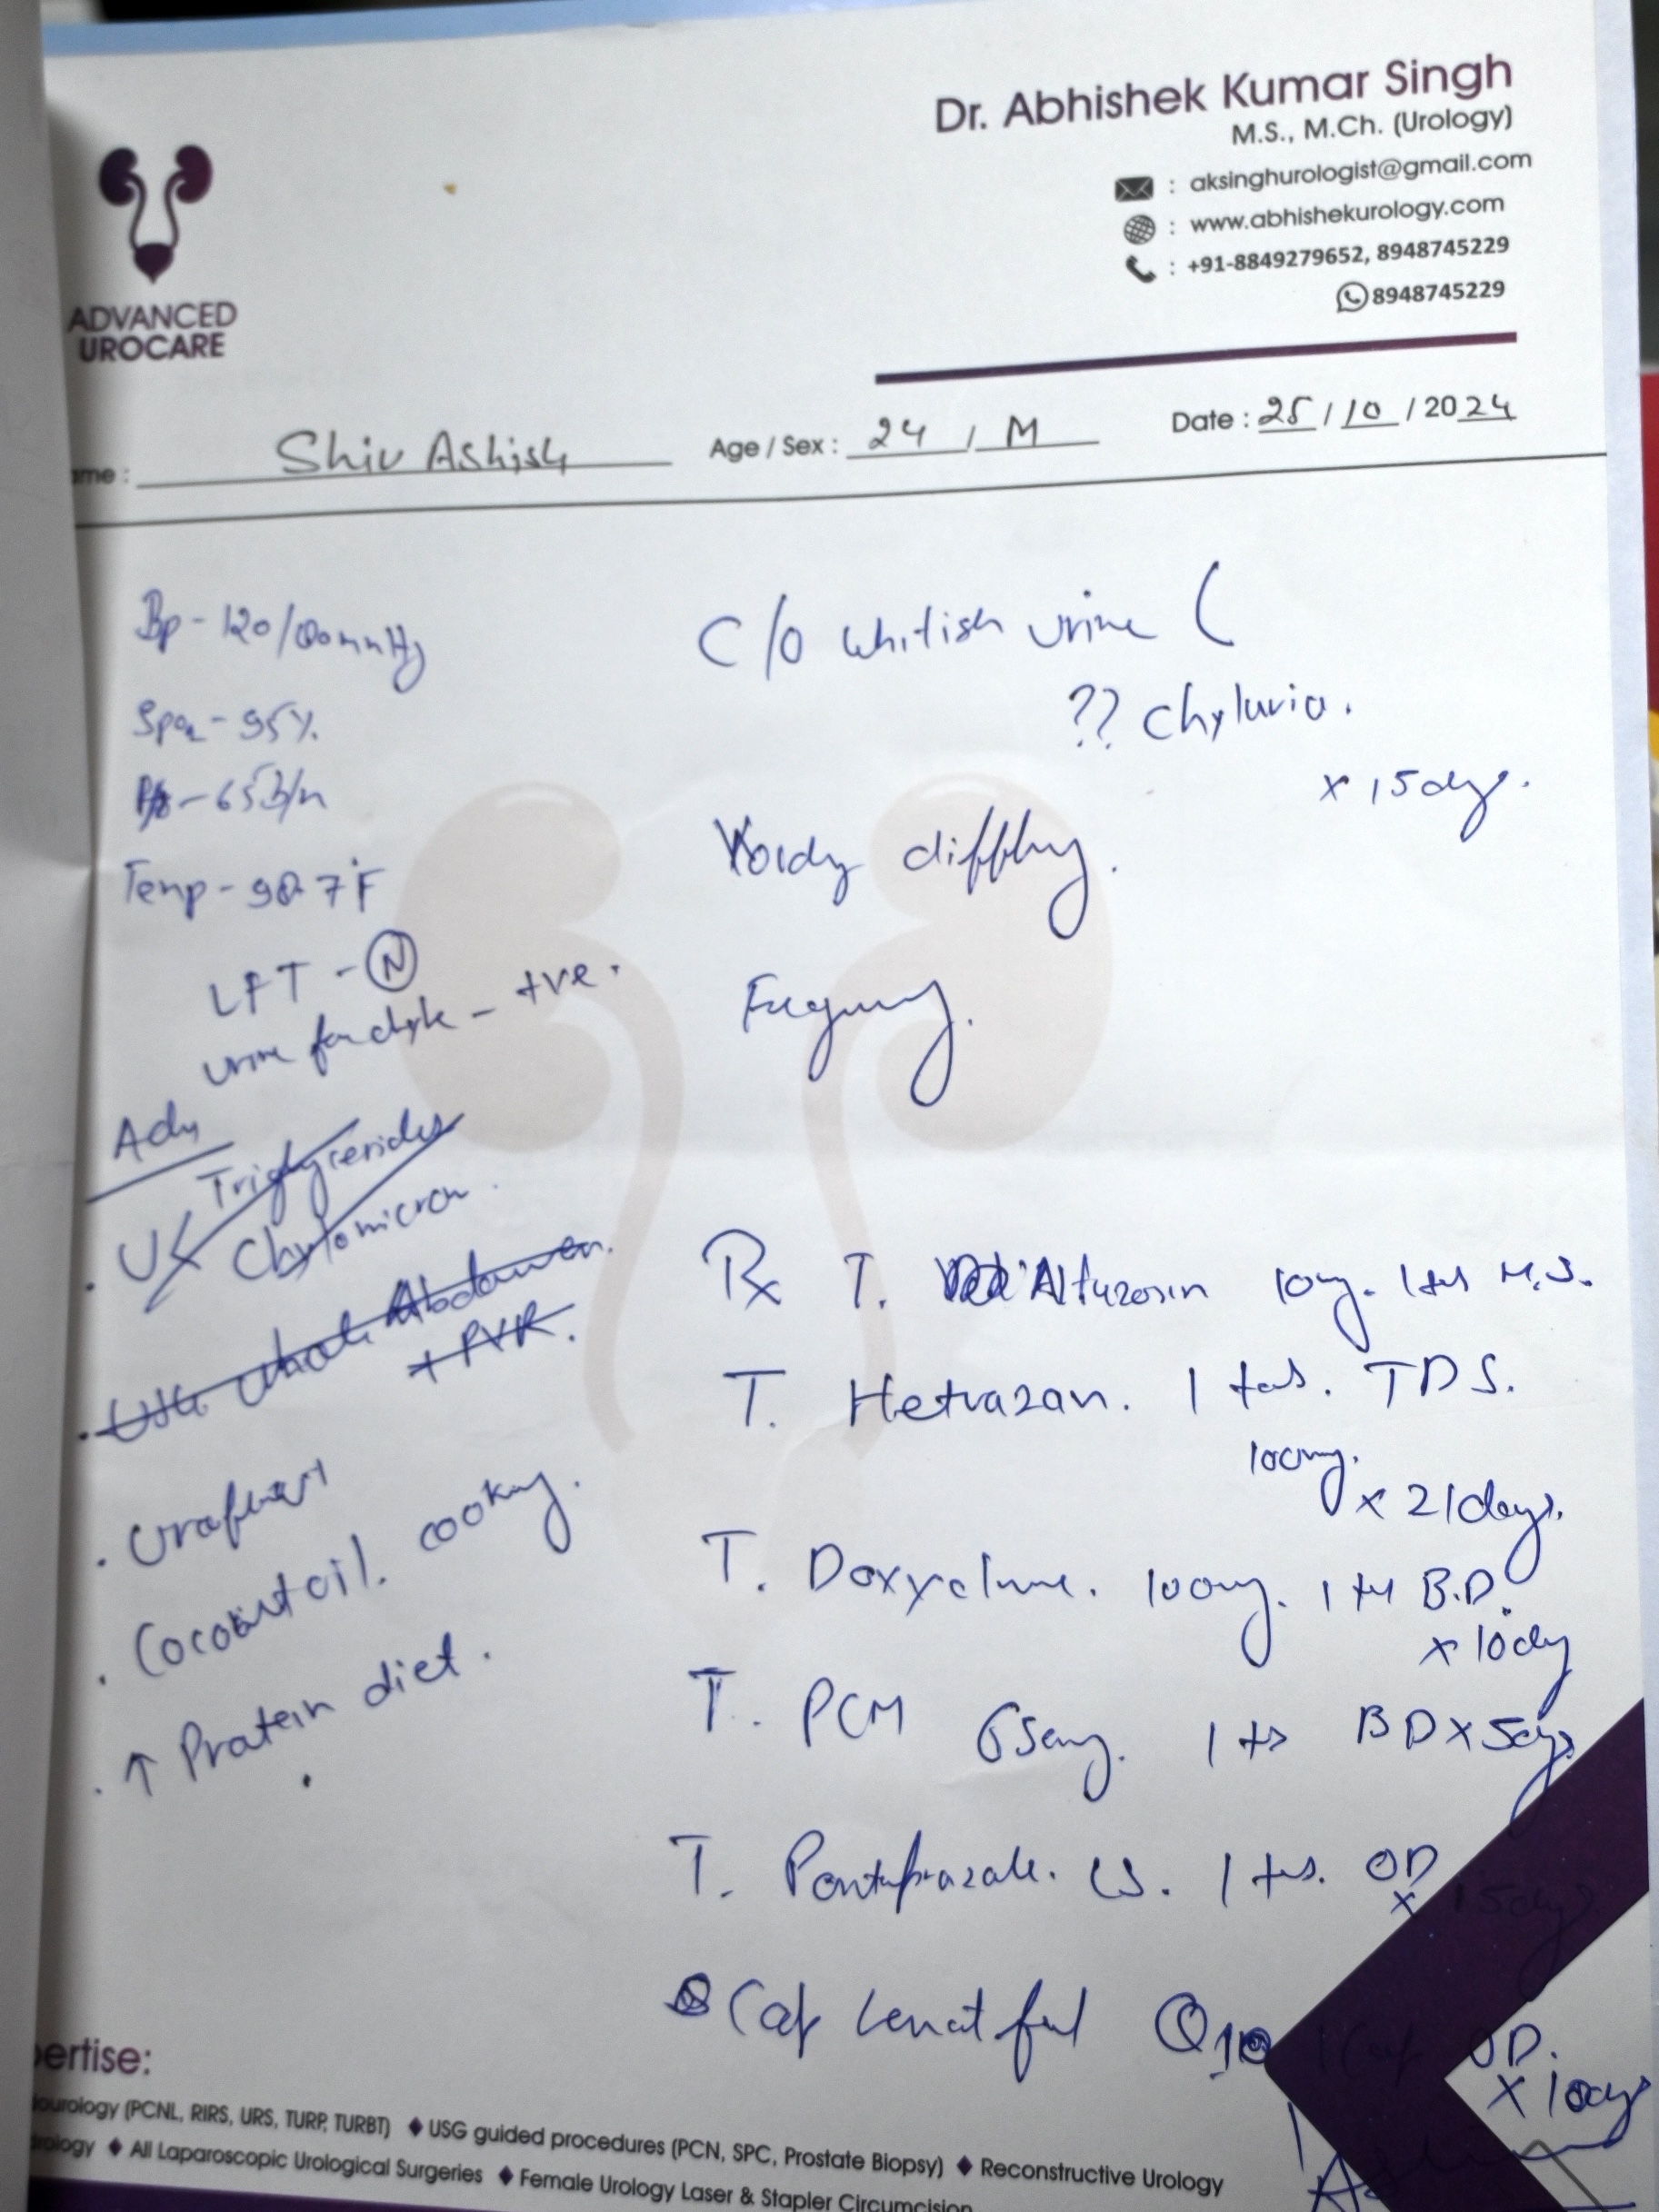 Dr. Abhishek Kumar Singh
M.S., M.Ch. (Urology)
: aksinghurologist@gmail.com
: www.abhishekurology.com
: +91-8849279652, 8948745229
8948745229
ADVANCED
UROCARE
ame : Shiv Ashish Age / Sex : 24 / M Date : 25 / 10 / 2024
Bp - 120/80mmHg
Spo2 - 95%
- 65 B/m
Temp - 98.7°F
LFT - N
urine for chyle - +ve.
C/O whitish urine (
?? Chyluria.
x 15 days.
difficulty.
Frequency.
Adv
Triglycerides
Chylomicron
USG Whole Abdomen.
+ PVR.
Coconut oil. cooking.
↑ Protein diet.
Rx T. Alfuzosin 10mg. 1 tab H.S.
T. Hetrazan. 1 tab. TDS.
100mg.
x 21 days.
T. Doxycline. 100mg. 1 tab B.D.
x 10 day
T. PCM 650mg. 1 tab BD x 5 days
T. Pantoprazole. 1 tab. OD
x 15 days
Cap Q10 1 Cap OD.
x 10 days
pertise:
ourology (PCNL, RIRS, URS, TURP, TURBT) ♦ USG guided procedures (PCN, SPC, Prostate Biopsy) ♦ Reconstructive Urology
rology ♦ All Laparoscopic Urological Surgeries ♦ Female Urology Laser & Stapler Circumcision